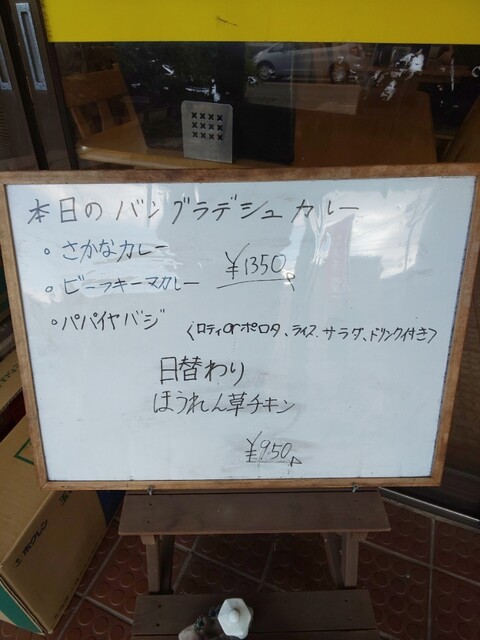 本日のバングラデシュカレー
• さかなカレー
• ビーフキーマカレー ¥1350
• パパイヤバジ
〈ロティorポロタ、ライス、サラダ、ドリンク付き〉
日替わり
ほうれん草チキン
¥950
ホクレン